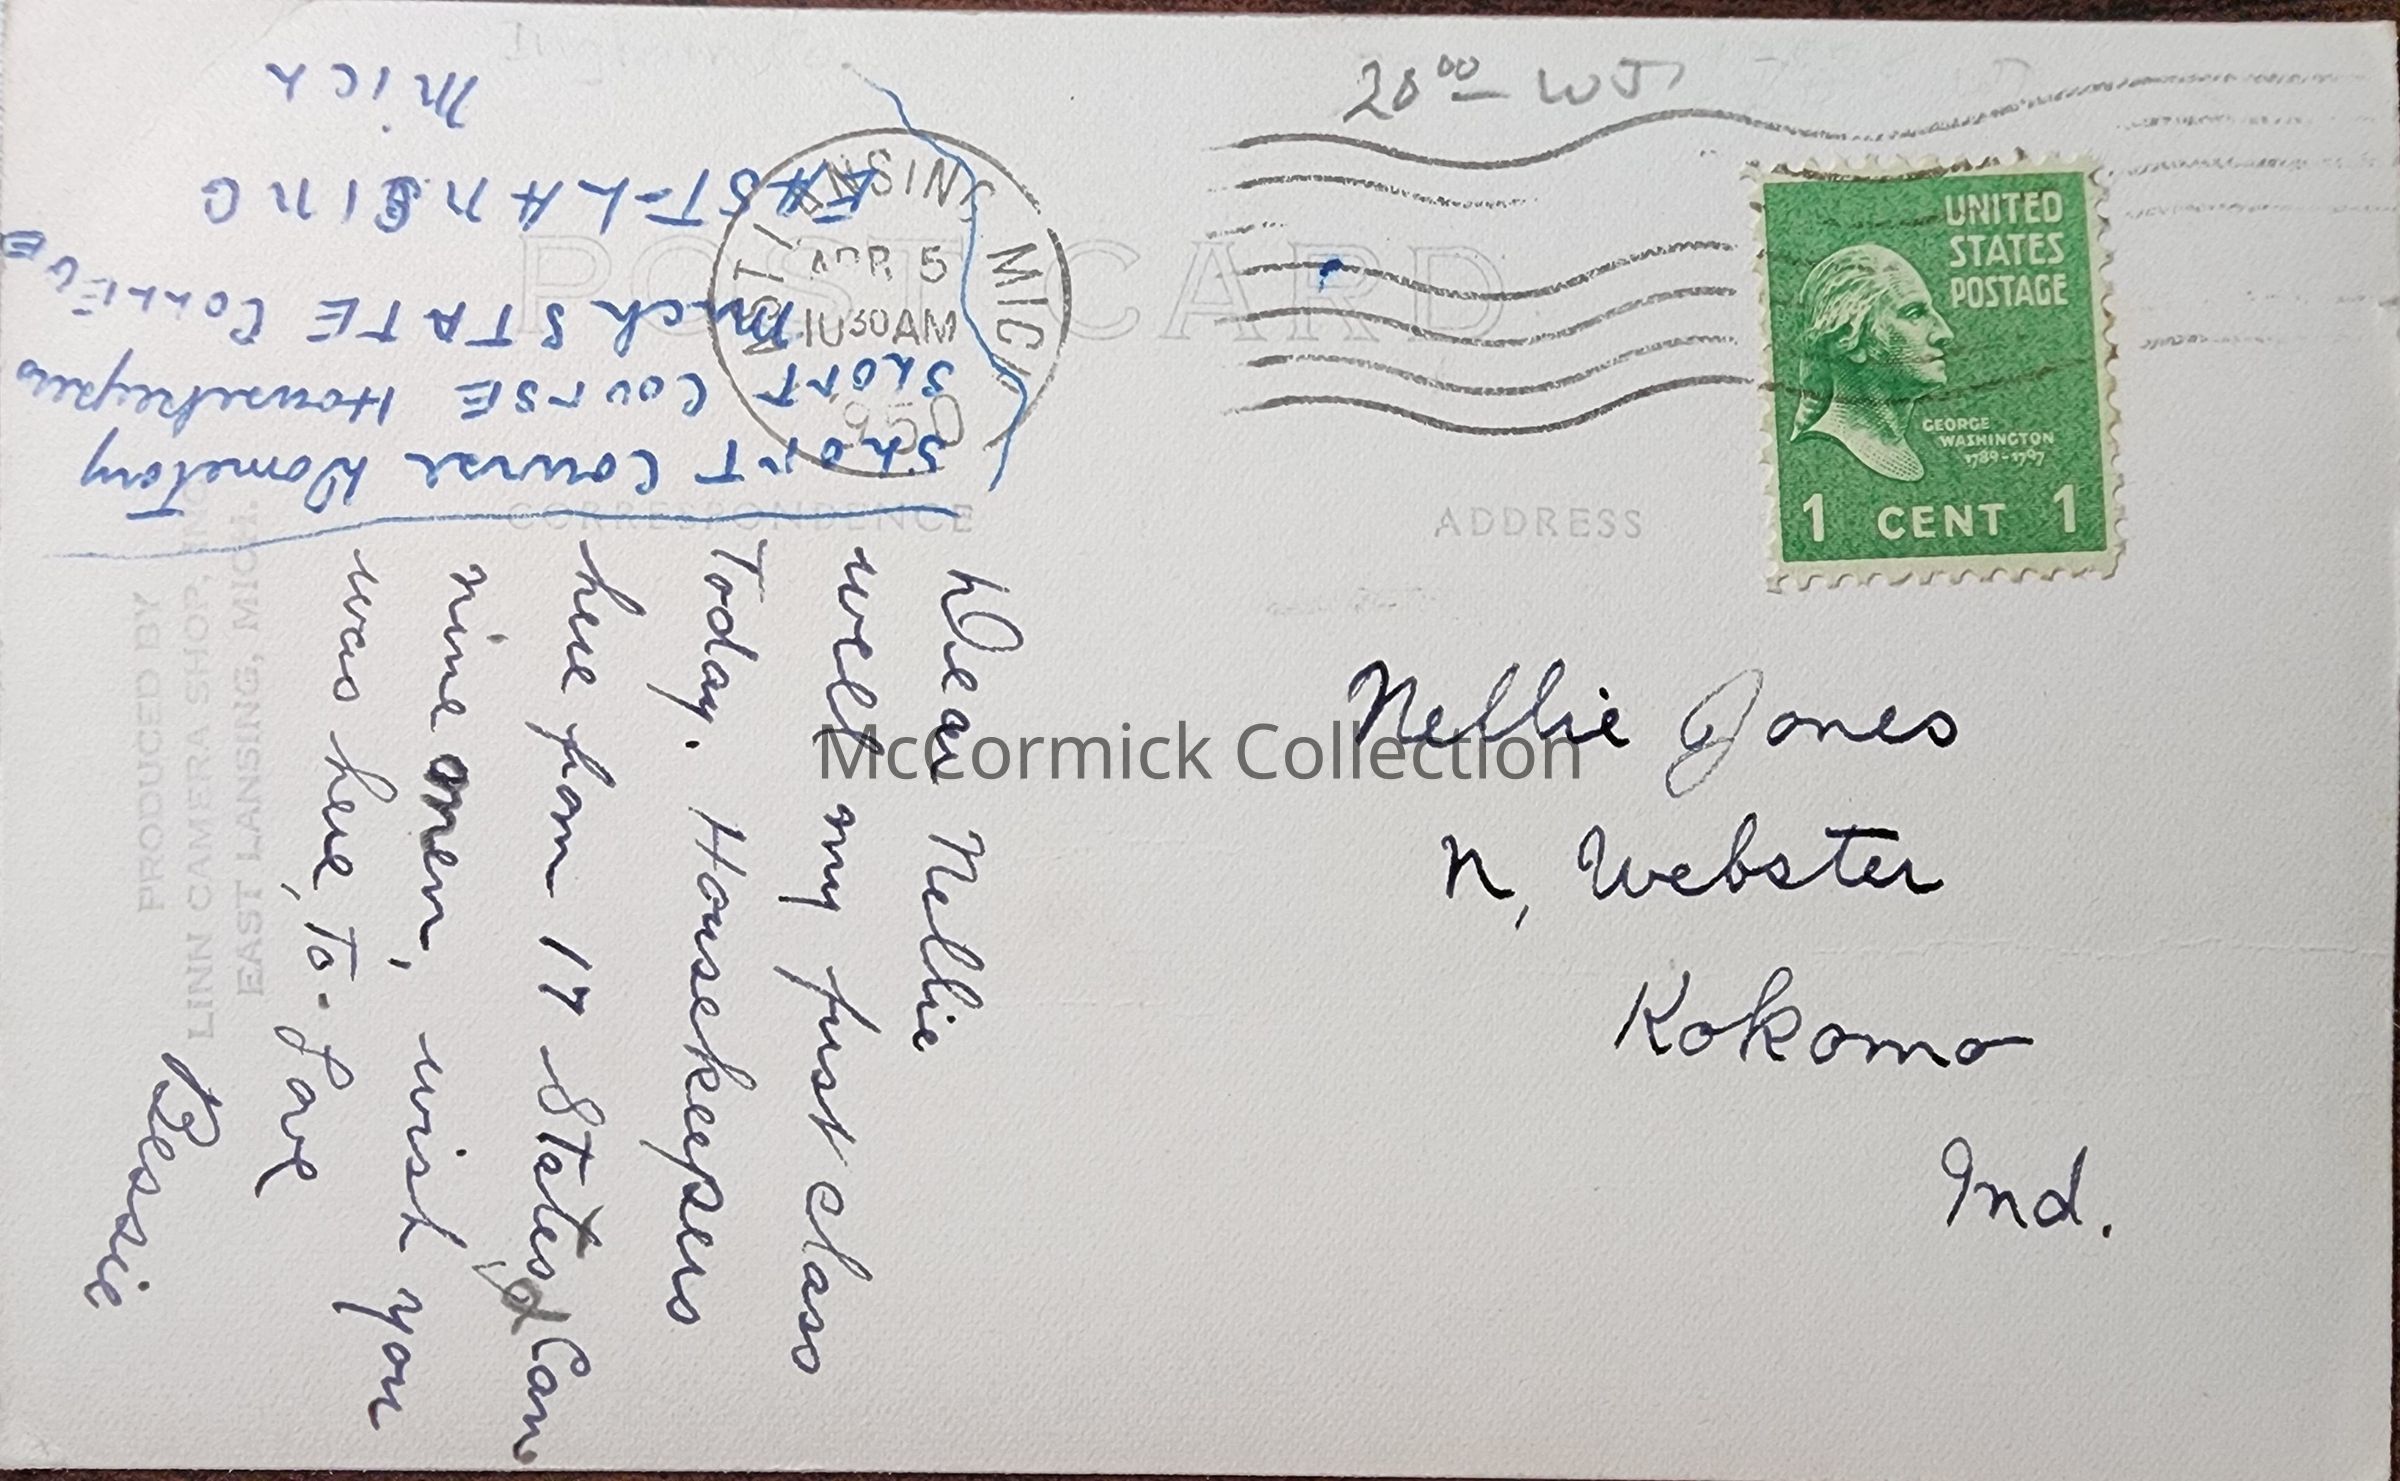 20⁰⁰ WJ
POST CARD
CORRESPONDENCE
ADDRESS
EAST LANSING MICH
APR 5
10 30 AM
1950
UNITED
STATES
POSTAGE
GEORGE
WASHINGTON
1789-1797
1 CENT 1
Short Course Dometory
Short Course Housekeepers
Mich State College
EAST-LANSING
Mich
Dear Nellie
well my first class
Today. Housekeepers
here from 17 States & Can
nine men, wish you
was here, to. Love
Bessie
PRODUCED BY
LINN CAMERA SHOP, INC.
EAST LANSING, MICH.
Nellie Jones
N. Webster
Kokomo
Ind.
McCormick Collection